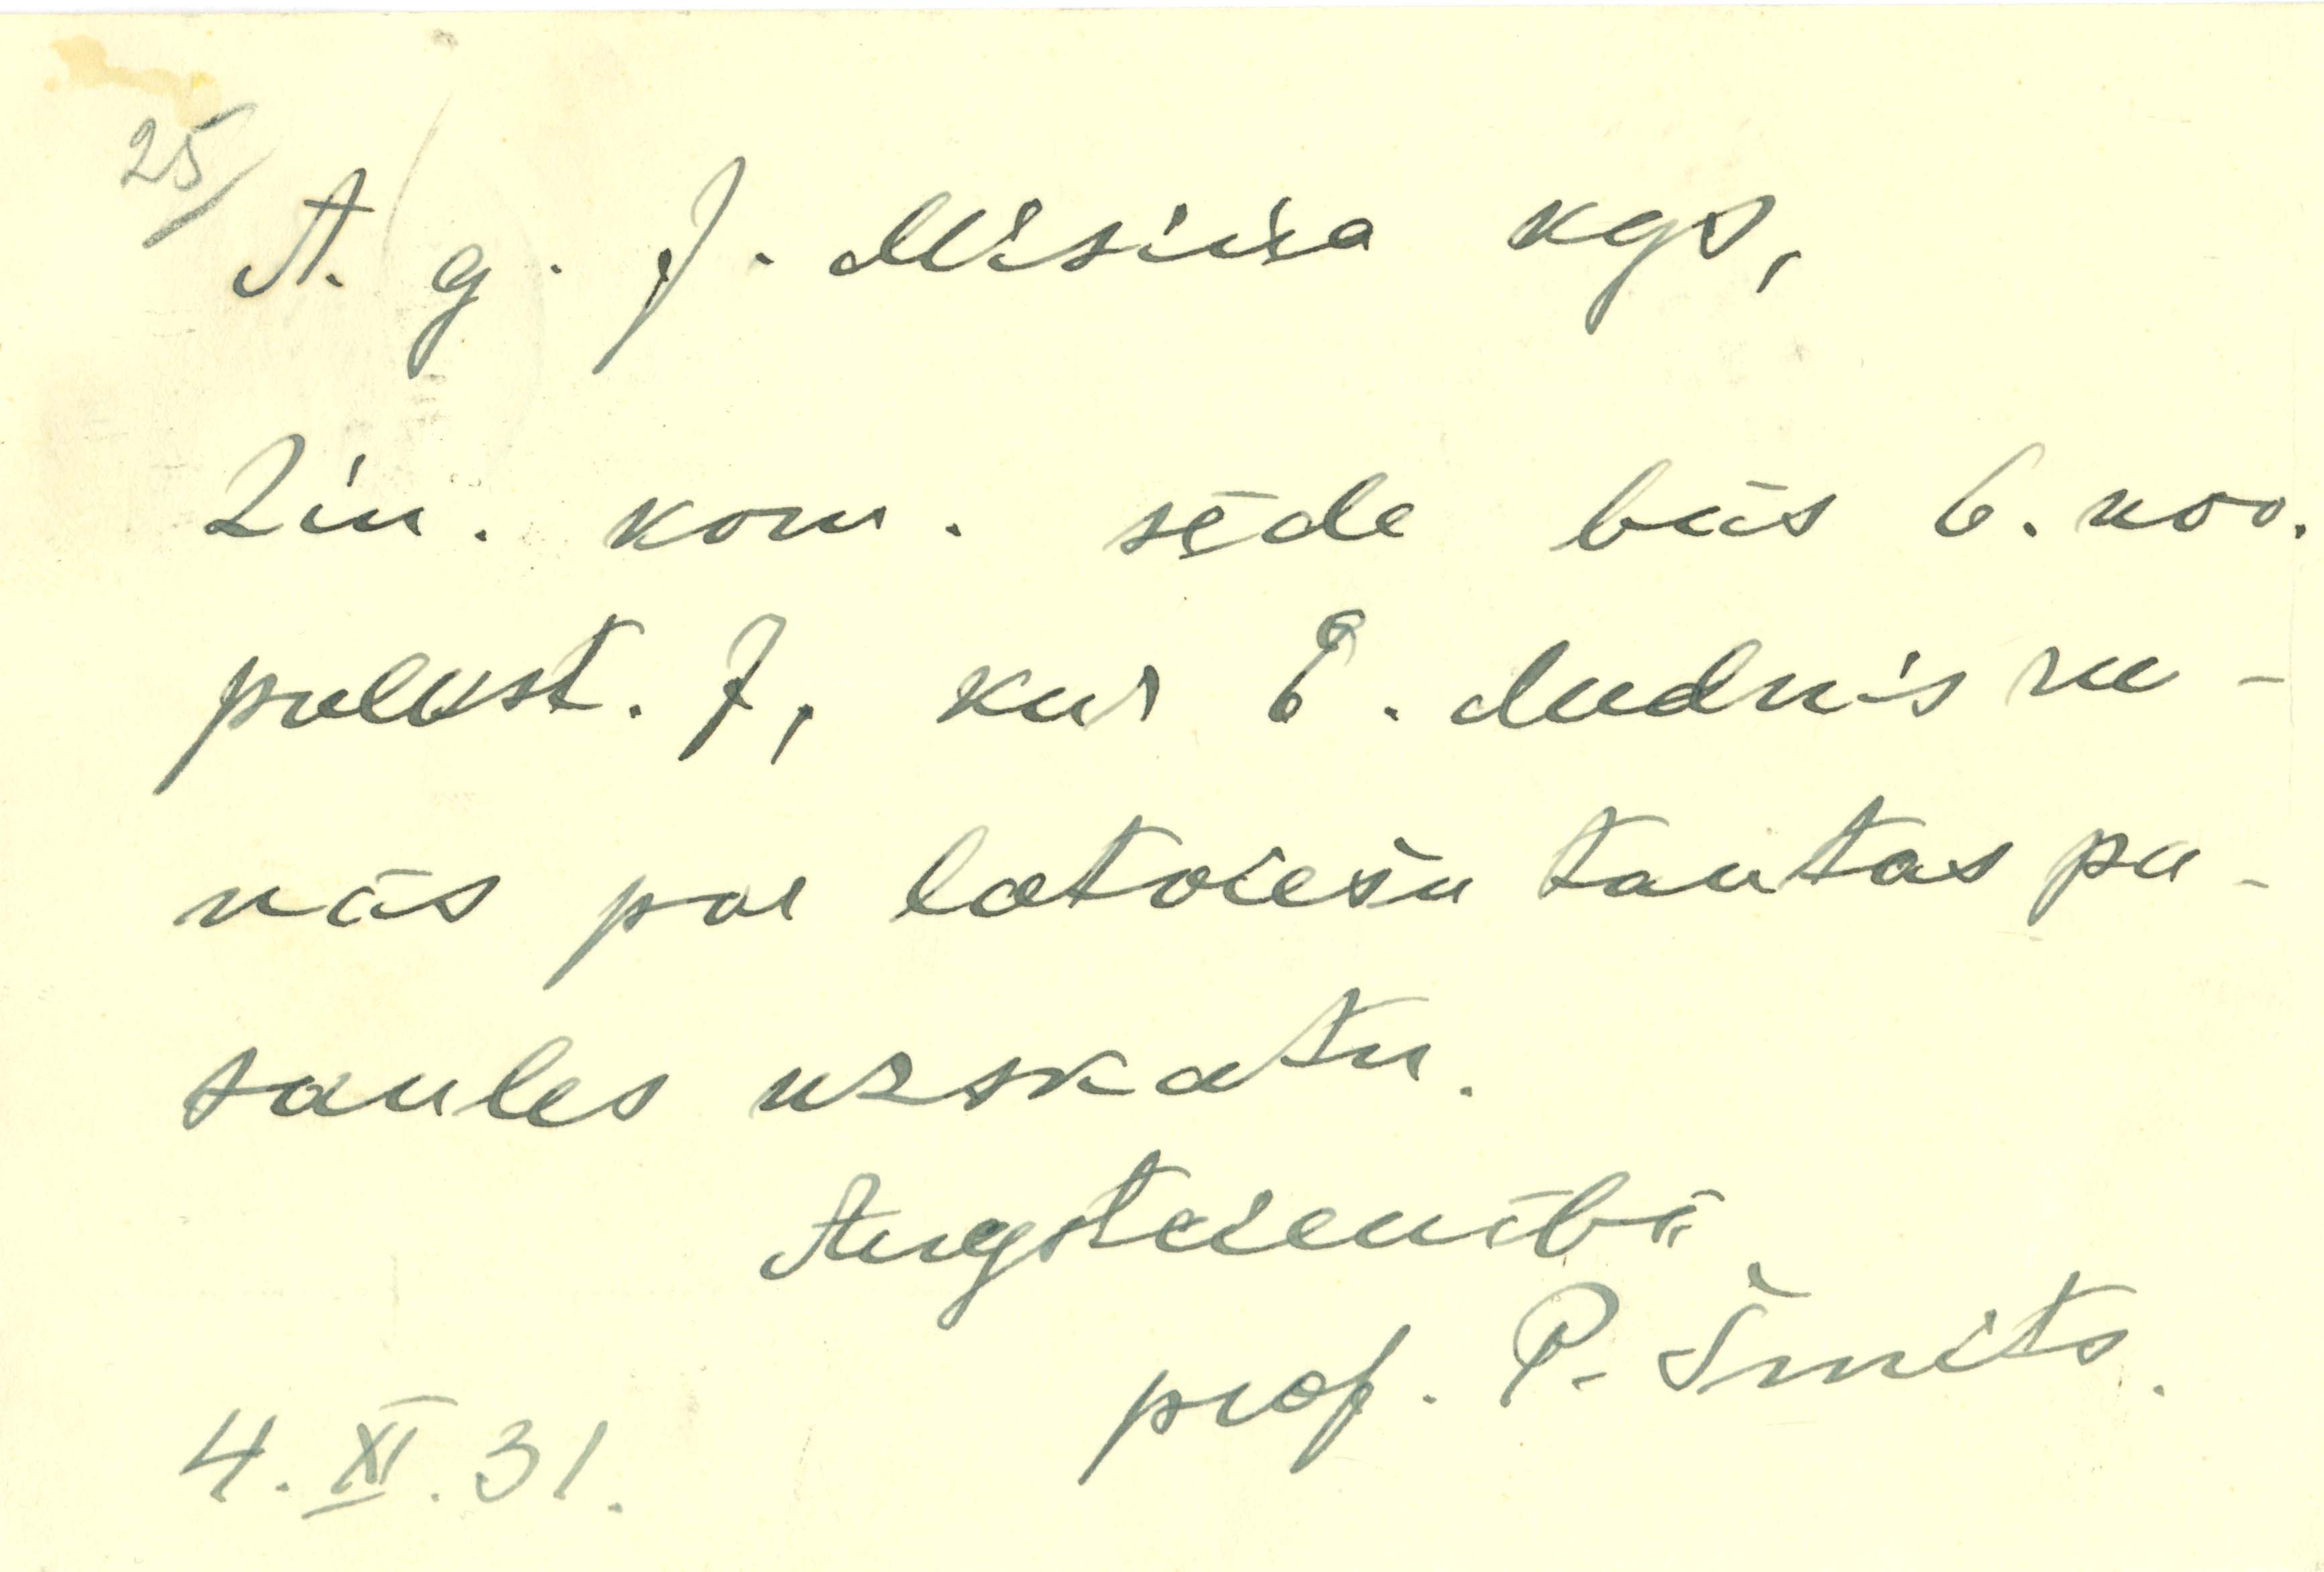 25/
A. g. J. Misiņa kgs,
Zin. kom. sēde būs 6. nov.
pulkst. 7, kur E. Mednis ru-
nās par latviešu tautas pa-
saules uzskatu.
Augstcienībā
prof. P. Šmits.
4. XI. 31.